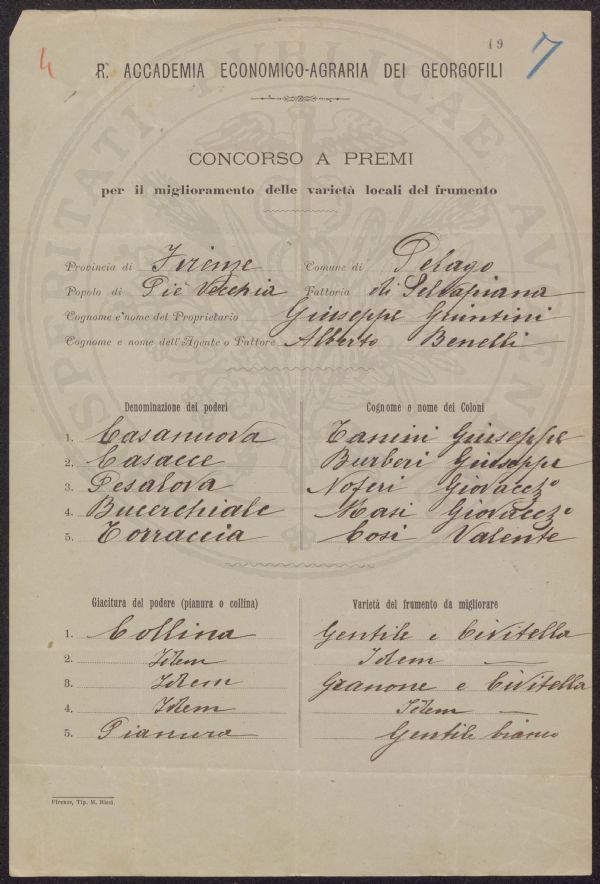 4
19
7
R. ACCADEMIA ECONOMICO-AGRARIA DEI GEORGOFILI
CONCORSO A PREMI
per il miglioramento delle varietà locali del frumento
Provincia di Firenze Comune di Pelago
Popolo di Piè Vecchia Fattoria di Selvapiana
Cognome e nome del Proprietario Giuseppe Giuntini
Cognome e nome dell'Agente o Fattore Alberto Benelli
Denominazione dei poderi Cognome e nome dei Coloni
1. Casanuova Tanini Giuseppe
2. Casacce Burberi Giuseppe
3. Pesalova Noferi Giovacc.º
4. Bucerchiale Masi Giovacc.º
5. Torraccia Cosi Valente
Giacitura del podere (pianura o collina) Varietà del frumento da migliorare
1. Collina Gentile e Civitella
2. Idem Idem —
3. Idem Granone e Civitella
4. Idem Idem —
5. Pianura Gentile bianco
Firenze, Tip. M. Ricci.